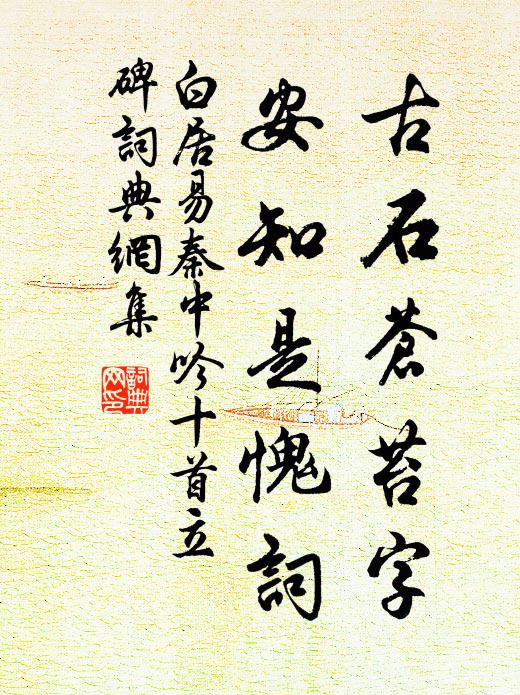 古石蒼苔字
安知是愧詞
白居易秦中吟十首立
碑詞典網集
詞典
网印